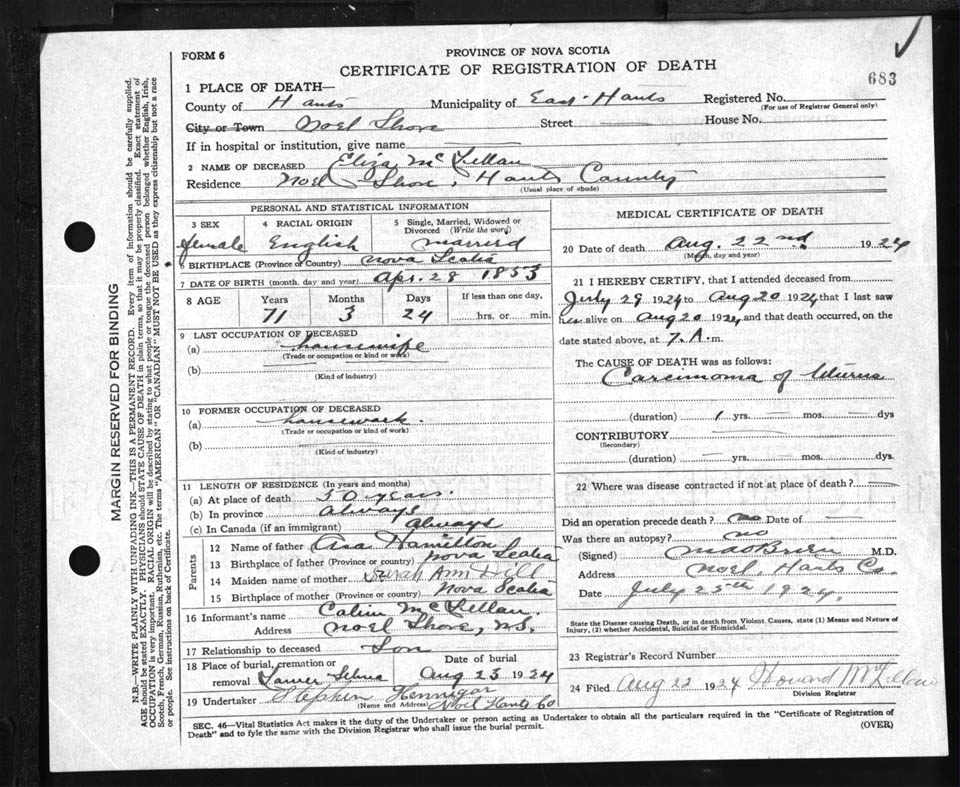 FORM 6
PROVINCE OF NOVA SCOTIA
CERTIFICATE OF REGISTRATION OF DEATH
683
1 PLACE OF DEATH—
County of Hants Municipality of East-Hants Registered No.
(For use of Registrar General only)
City or Town Noel Shore Street House No.
If in hospital or institution, give name
2 NAME OF DECEASED Eliza McLellan
Residence Noel Shore, Hants County
(Usual place of abode)
PERSONAL AND STATISTICAL INFORMATION
3 SEX 4 RACIAL ORIGIN 5 Single, Married, Widowed or Divorced (Write the word)
female English married
6 BIRTHPLACE (Province or Country) Nova Scotia
7 DATE OF BIRTH (month, day and year) Apr. 28 1853
8 AGE Years Months Days If less than one day,
71 3 24 hrs. or min.
9 LAST OCCUPATION OF DECEASED
(a) housewife
(Trade or occupation or kind of work)
(b)
(Kind of industry)
10 FORMER OCCUPATION OF DECEASED
(a) housework
(Trade or occupation or kind of work)
(b)
(Kind of industry)
11 LENGTH OF RESIDENCE (In years and months)
(a) At place of death 50 years.
(b) In province always
(c) In Canada (if an immigrant) always
Parents
12 Name of father Asa Hamilton
13 Birthplace of father (Province or country) Nova Scotia
14 Maiden name of mother Sarah Ann Dill
15 Birthplace of mother (Province or country) Nova Scotia
16 Informant's name Calvin McLellan.
Address Noel Shore, N.S.
17 Relationship to deceased Son
18 Place of burial, cremation or removal Lower Selma Date of burial Aug 23 1924
19 Undertaker Stephen Hennigar
(Name and Address) Noel Hants Co
MEDICAL CERTIFICATE OF DEATH
20 Date of death Aug. 22nd 1924
(Month, day and year)
21 I HEREBY CERTIFY, that I attended deceased from
July 29 1924 to Aug 20 1924 that I last saw
her alive on Aug 20 1924 and that death occurred, on the
date stated above, at 7. A. m.
The CAUSE OF DEATH was as follows:
Carcinoma of Uterus
(duration) 1 yrs. mos. dys
CONTRIBUTORY
(Secondary)
(duration) yrs. mos. dys.
22 Where was disease contracted if not at place of death?
Did an operation precede death? no Date of
Was there an autopsy? no
(Signed) M.D.
Address Noel, Hants Co.
Date July 25th 1924.
State the Disease causing Death, or in death from Violent Causes, state (1) Means and Nature of
Injury, (2) whether Accidental, Suicidal or Homicidal.
23 Registrar's Record Number
24 Filed Aug 22 1924 Howard McLellan
Division Registrar
SEC. 46—Vital Statistics Act makes it the duty of the Undertaker or person acting as Undertaker to obtain all the particulars required in the "Certificate of Registration of
Death" and to fyle the same with the Division Registrar who shall issue the burial permit.
(OVER)
MARGIN RESERVED FOR BINDING
N.B.—WRITE PLAINLY WITH UNFADING INK—THIS IS A PERMANENT RECORD. Every item of information should be carefully supplied.
AGE should be stated EXACTLY. PHYSICIANS should STATE CAUSE OF DEATH in plain terms, so that it may be properly classified. Exact statement of
OCCUPATION is very important. RACIAL ORIGIN will be described by stating to what people or tongue the deceased person belonged whether English, Irish,
Scotch, French, German, Russian, Ruthenian, etc. The terms "AMERICAN" OR "CANADIAN" MUST NOT BE USED as they express citizenship but not a race
or people. See instructions on back of Certificate.